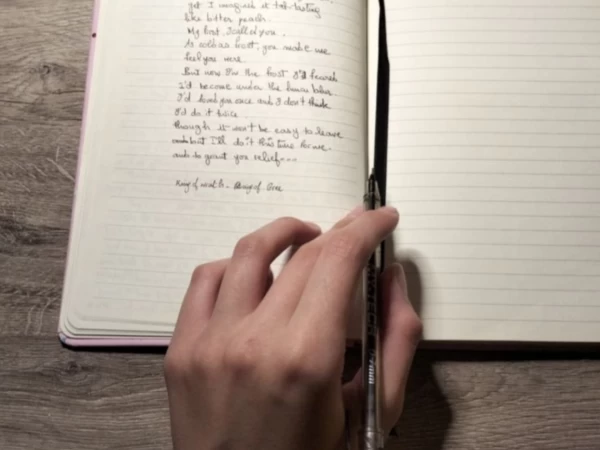 yet I imagined it tart-tasting
like bitter peach.
My frost, I called you.
As cold as frost, you made me
feel you were.
But now I'm the frost I'd feared
I'd become under the
I'd loved you once and I don't think
I'd do it twice.
though it won't be easy to leave
but I'll do it this time for me.
and to grant you relief...
King of wrath - King of